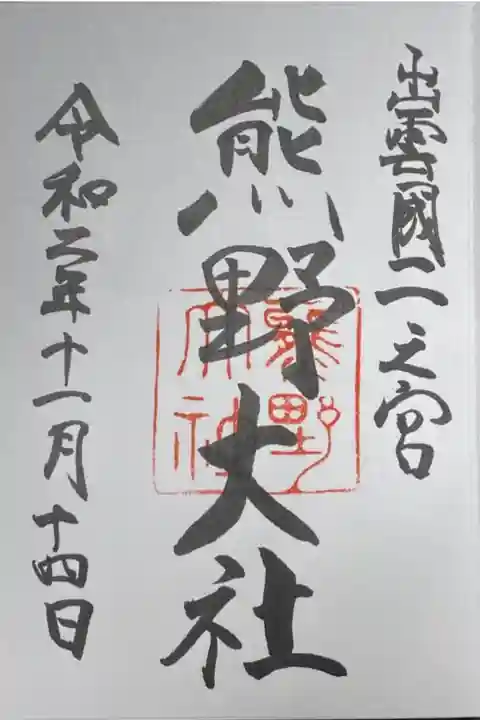 出雲國二之宮
熊野大社
令和二年十一月十四日
熊野
大社